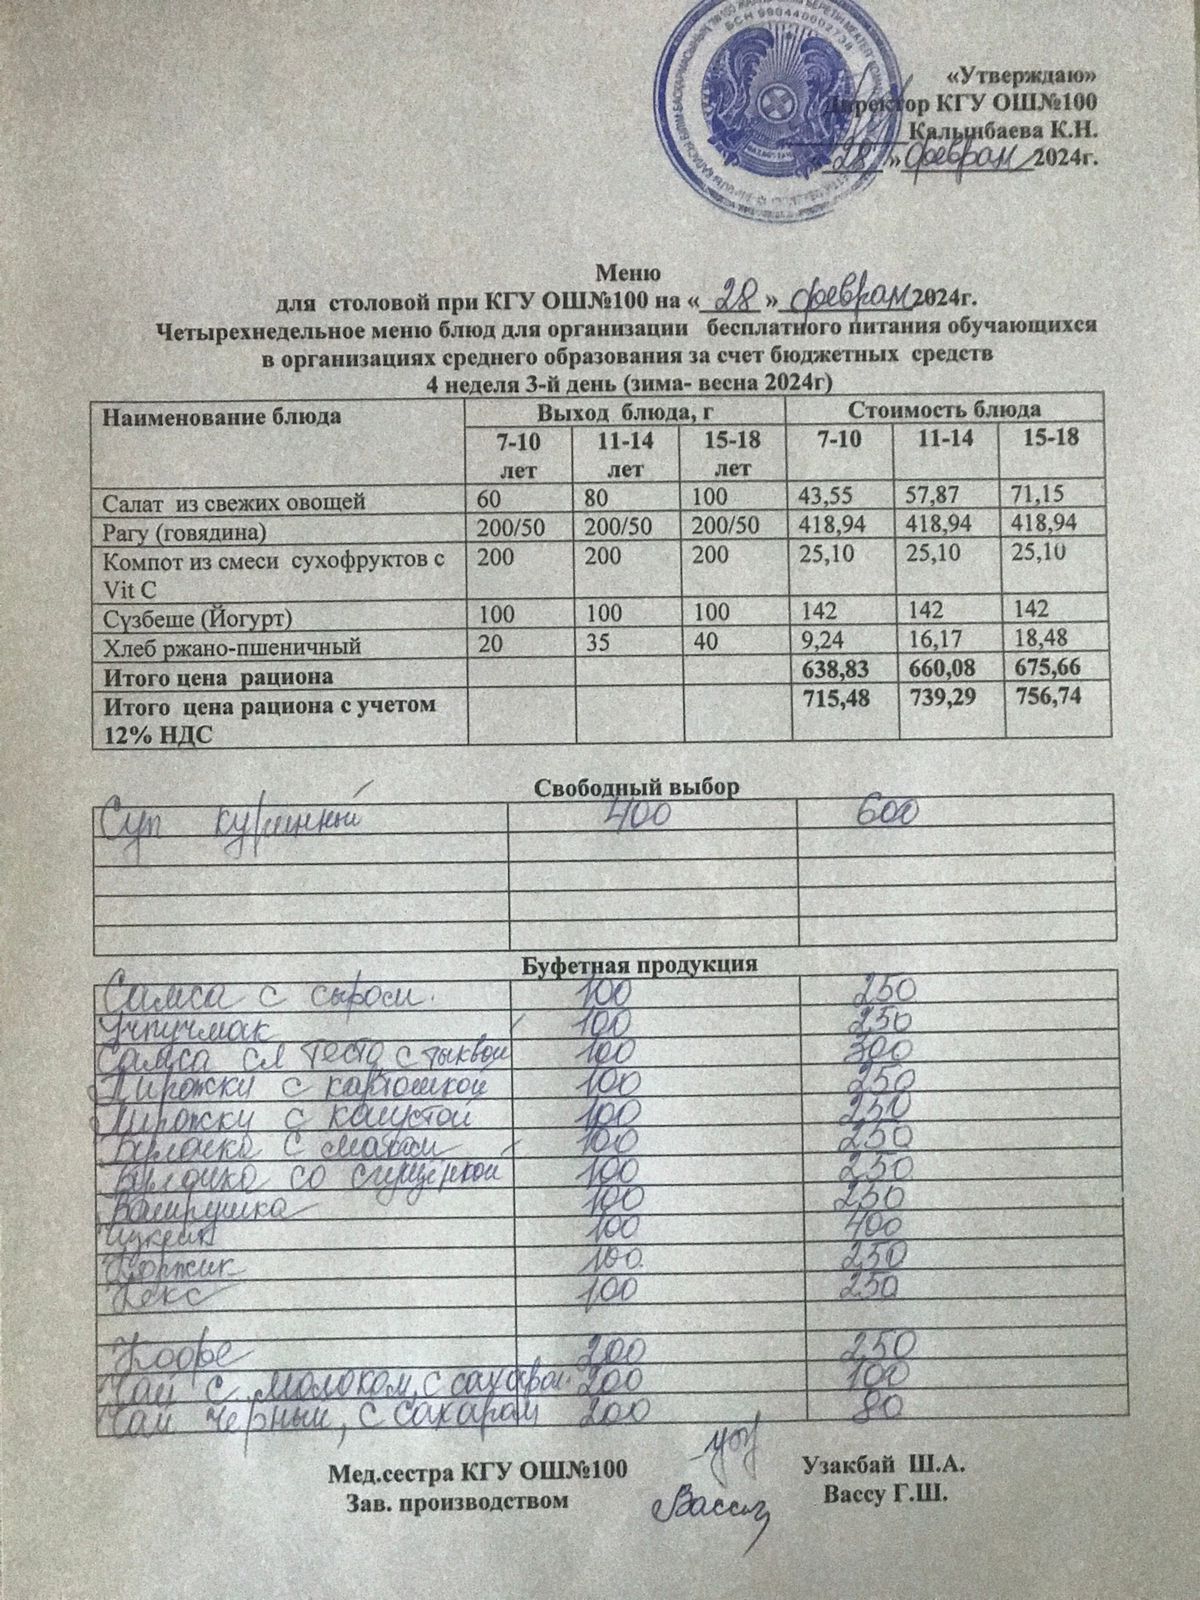 БСН 990440002738
«Утверждаю»
Директор КГУ ОШ№100
Калынбаева К.Н.
28 » феврал 2024г.
Меню
для столовой при КГУ ОШ№100 на « 28 » феврал 2024г.
Четырехнедельное меню блюд для организации бесплатного питания обучающихся
в организациях среднего образования за счет бюджетных средств
4 неделя 3-й день (зима- весна 2024г)
Наименование блюда Выход блюда, г Стоимость блюда
7-10 лет 11-14 лет 15-18 лет 7-10 11-14 15-18
Салат из свежих овощей 60 80 100 43,55 57,87 71,15
Рагу (говядина) 200/50 200/50 200/50 418,94 418,94 418,94
Компот из смеси сухофруктов с 200 200 200 25,10 25,10 25,10
Vit C
Сүзбеше (Йогурт) 100 100 100 142 142 142
Хлеб ржано-пшеничный 20 35 40 9,24 16,17 18,48
Итого цена рациона 638,83 660,08 675,66
Итого цена рациона с учетом 715,48 739,29 756,74
12% НДС
Свободный выбор
Суп куринный 400 600
Буфетная продукция
Самса с сыром. 100 250
Учпучмак 100 250
Самса сл тесто с тыквой 100 300
Пирожки с картошкой 100 250
Пирожки с капустой 100 250
Булочка с маком 100 250
Булочка со сгущёнкой 100 250
Ватрушка 100 250
100 400
Коржик 100 250
Кекс 100 250
Кофе 200 250
Чай с молоком, с сахаром. 200 100
Чай черный, с сахаром 200 80
Мед.сестра КГУ ОШ№100 Узакбай Ш.А.
Зав. производством Вассу Г.Ш.